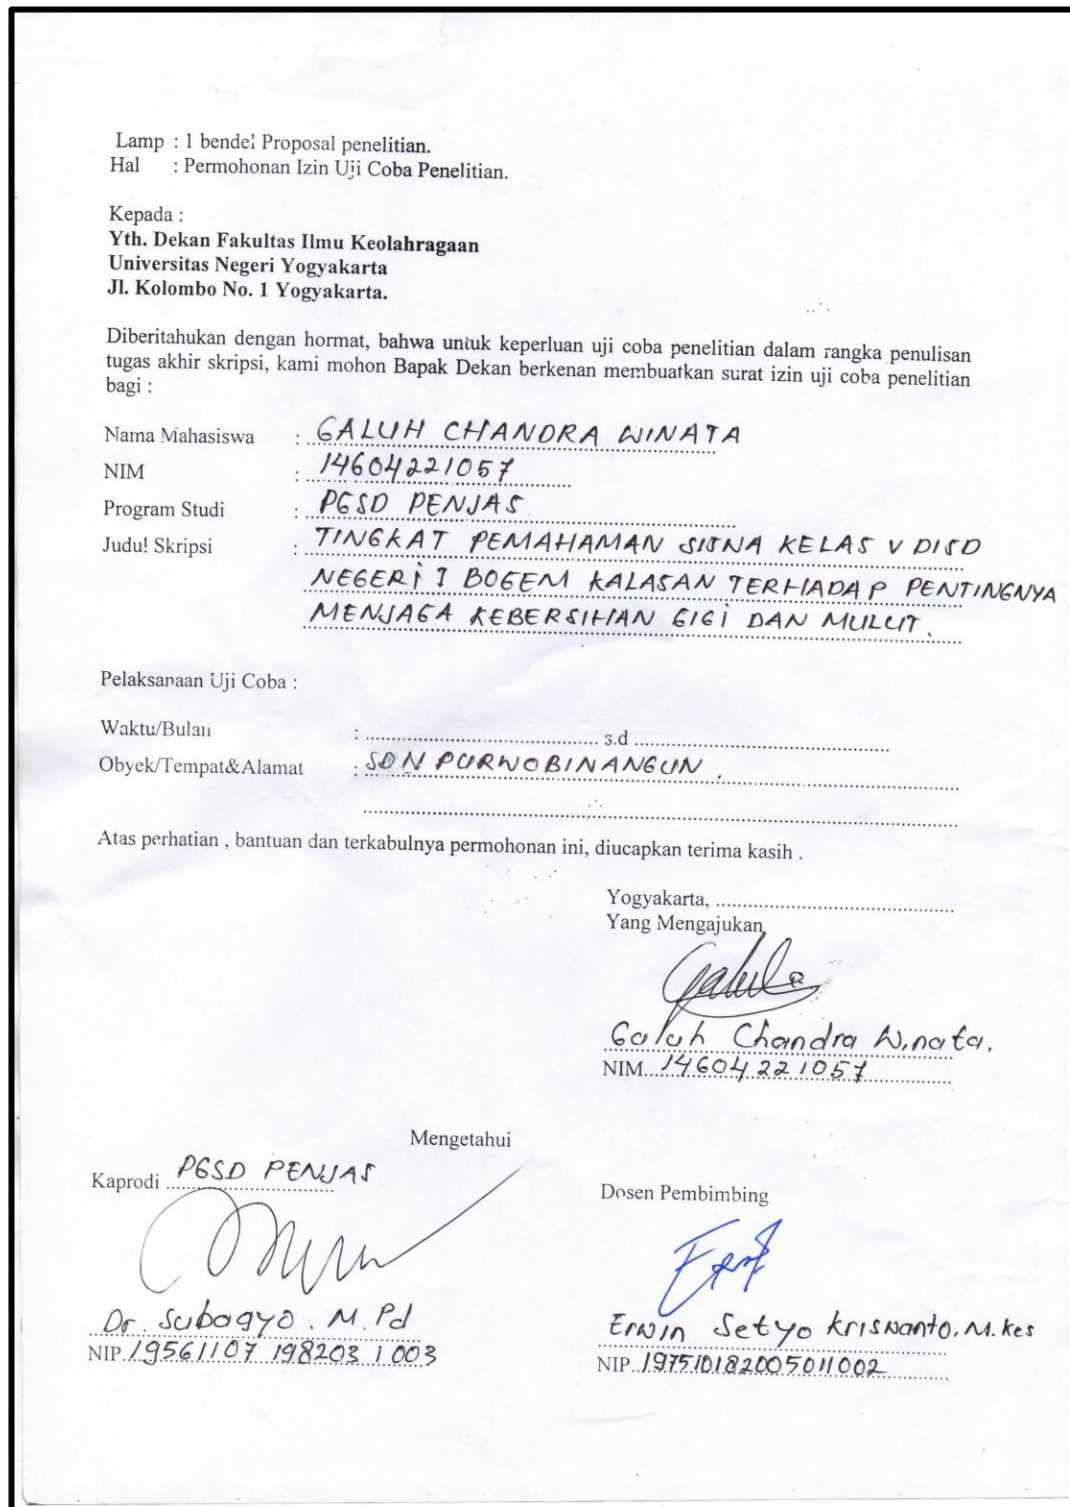 Lamp : 1 bendel Proposal penelitian.
Hal : Permohonan Izin Uji Coba Penelitian.
Kepada :
Yth. Dekan Fakultas Ilmu Keolahragaan
Universitas Negeri Yogyakarta
Jl. Kolombo No. 1 Yogyakarta.
Diberitahukan dengan hormat, bahwa untuk keperluan uji coba penelitian dalam rangka penulisan
tugas akhir skripsi, kami mohon Bapak Dekan berkenan membuatkan surat izin uji coba penelitian
bagi :
Nama Mahasiswa : GALUH CHANDRA WINATA
NIM : 14604221057
Program Studi : PGSD PENJAS
Judul Skripsi : TINGKAT PEMAHAMAN SISWA KELAS V DI SD
NEGERI I BOGEM KALASAN TERHADAP PENTINGNYA
MENJAGA KEBERSIHAN GIGI DAN MULUT.
Pelaksanaan Uji Coba :
Waktu/Bulan : ........................................ s.d ............................................
Obyek/Tempat&Alamat : SDN PURWOBINANGUN.
Atas perhatian , bantuan dan terkabulnya permohonan ini, diucapkan terima kasih .
Yogyakarta, ..........................................
Yang Mengajukan
Galuh Chandra Winata.
NIM. 14604221057
Mengetahui
Kaprodi PGSD PENJAS
Dosen Pembimbing
Dr. Subagyo. M.Pd
NIP. 19561107 198203 1 003
Erwin Setyo Kriswanto, M.Kes
NIP. 197510182005011002